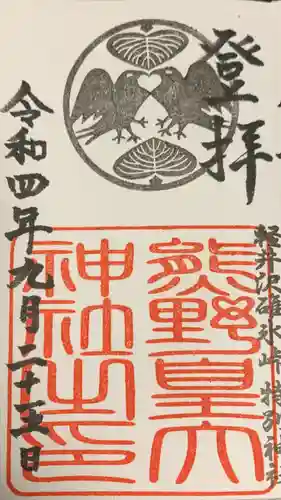 登拝
軽井沢碓氷峠 特別神社
熊野皇大
神社之印
令和四年九月二十五日